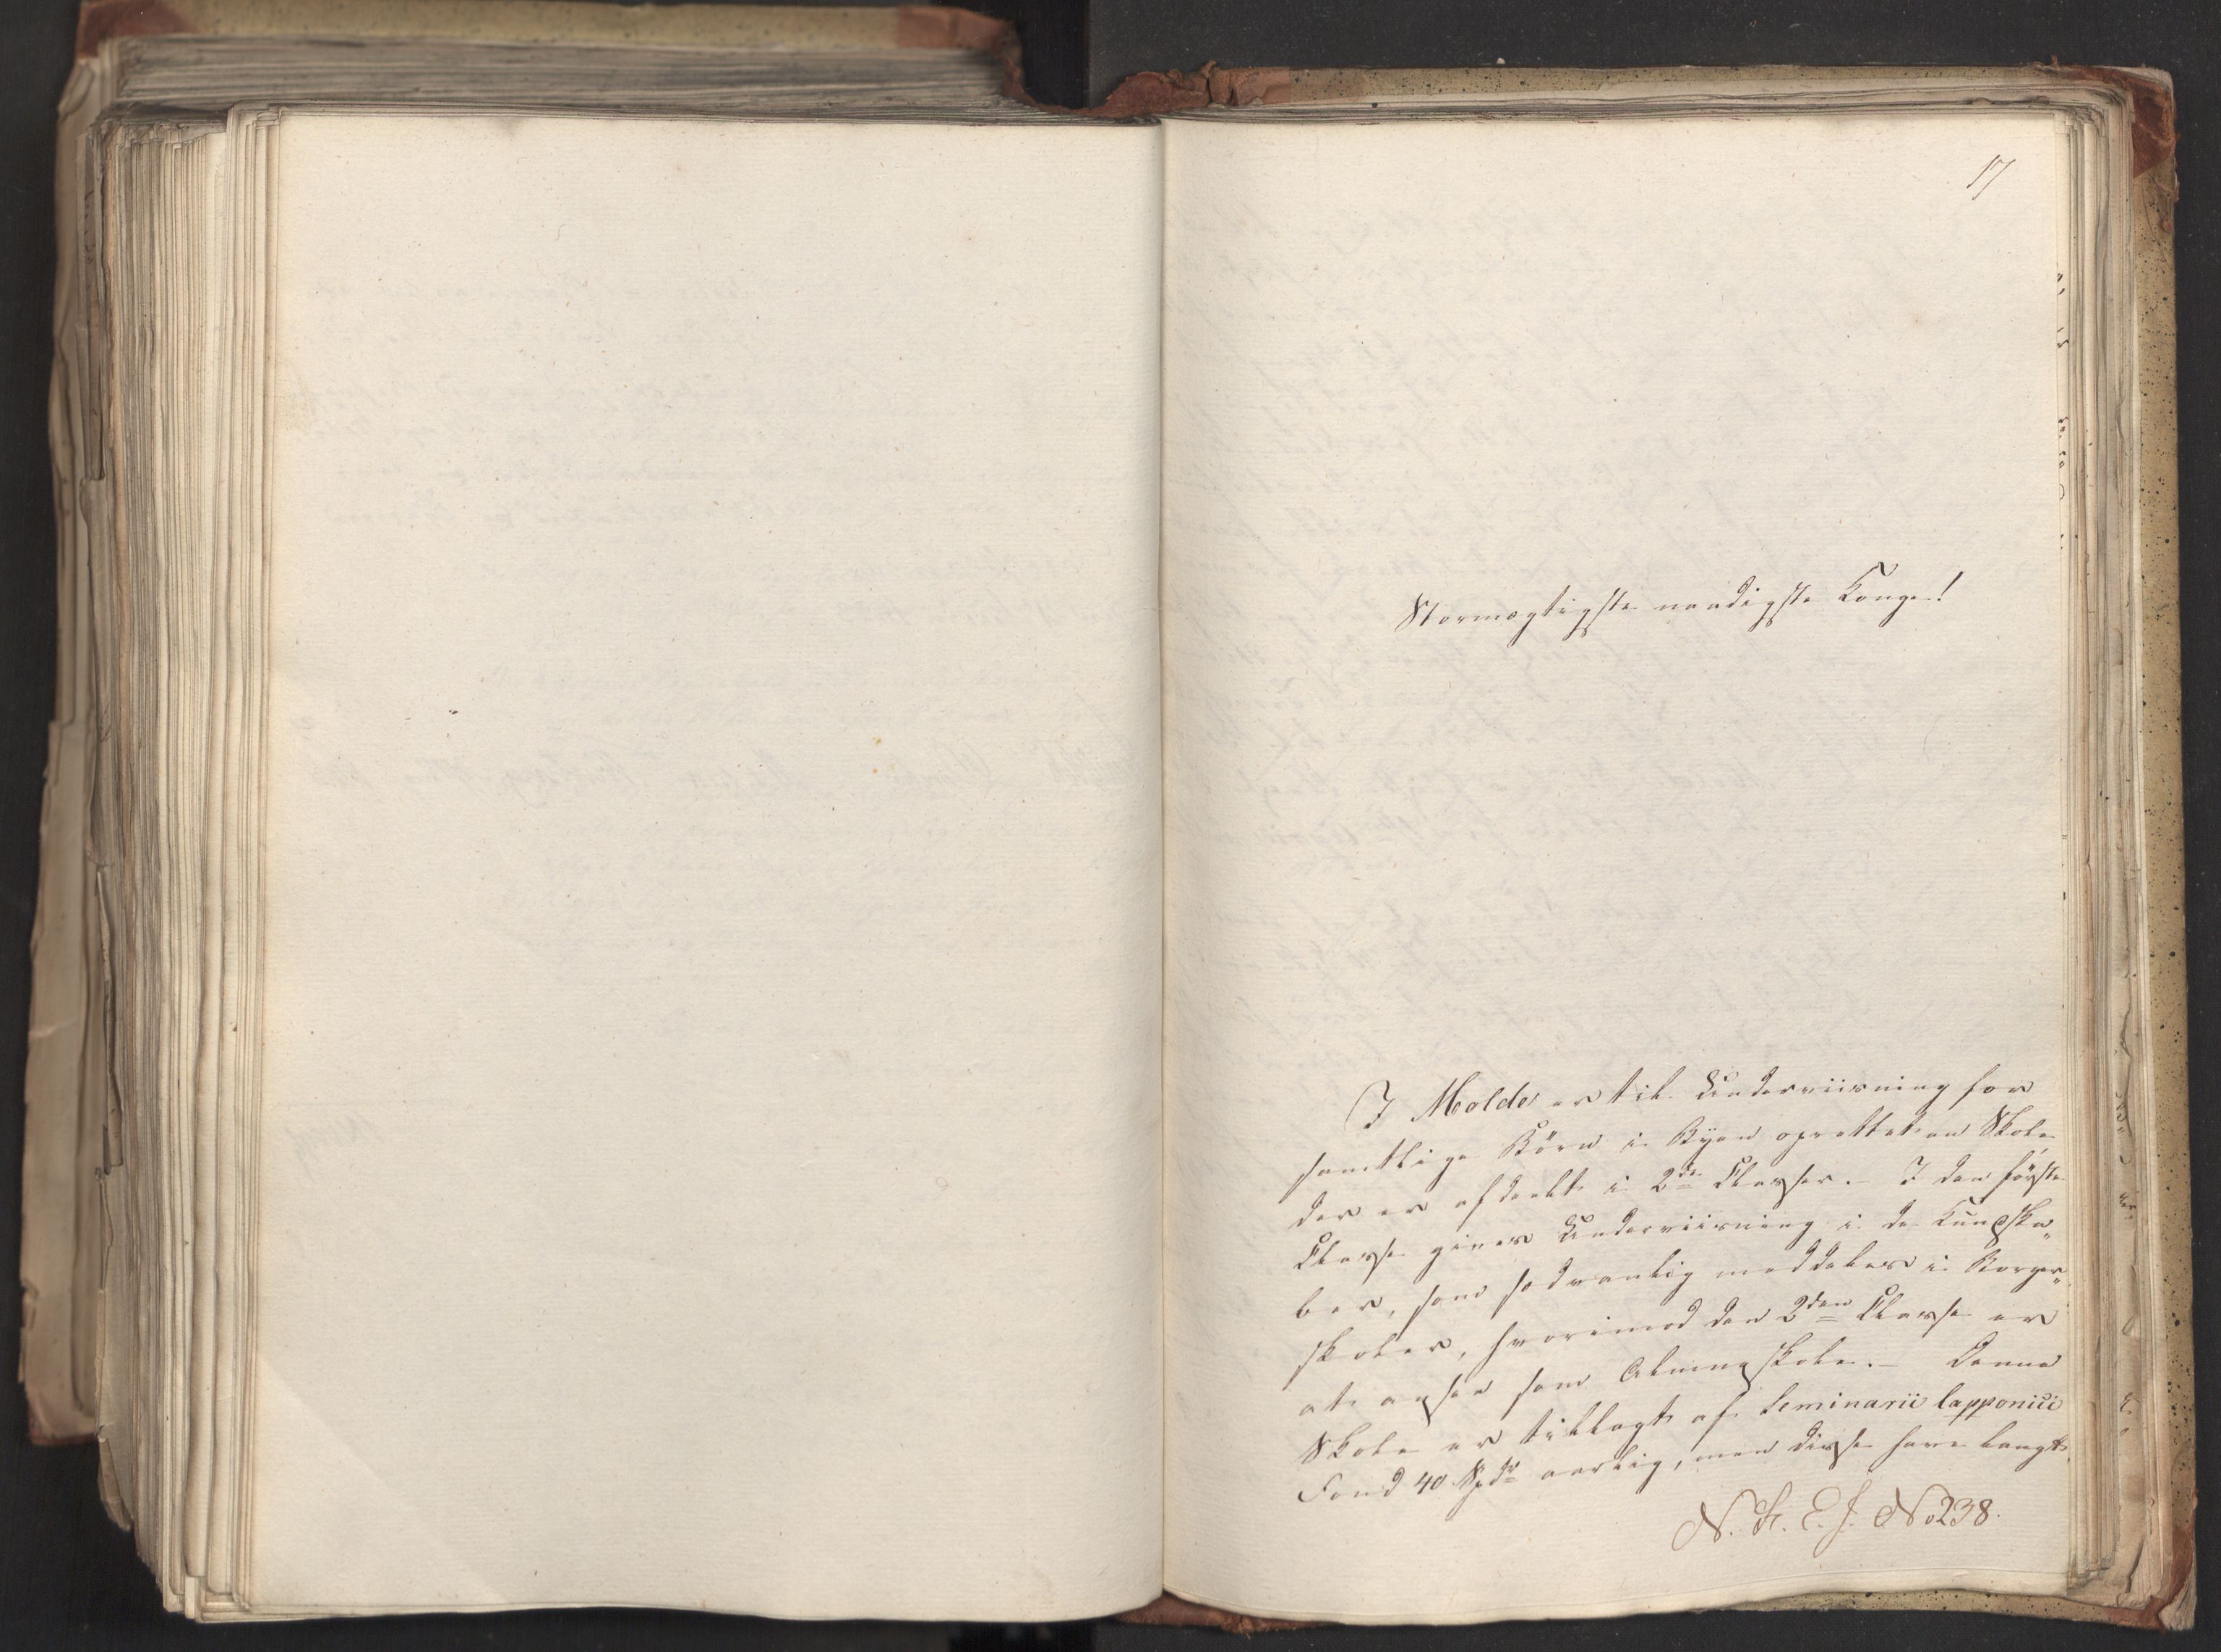 17
Stormægtigste naadigste Konge!
I Molde er til Underviisning for
samtlige Börn i Byen oprettet en Skole,
der er afdeelt i 2de Classer. - I den förste
Classe gives Underviisning i de Kundska„
ber, som sædvanlig meddeles i Borger„
skoler, hvorimod den 2den Classe er
at ansee som Almueskole. - Denne
Skole er tillagt af Seminarii lapponici
Fond 40 Spdr aarlig, men disse have langt
N. S. E. J. No 238.